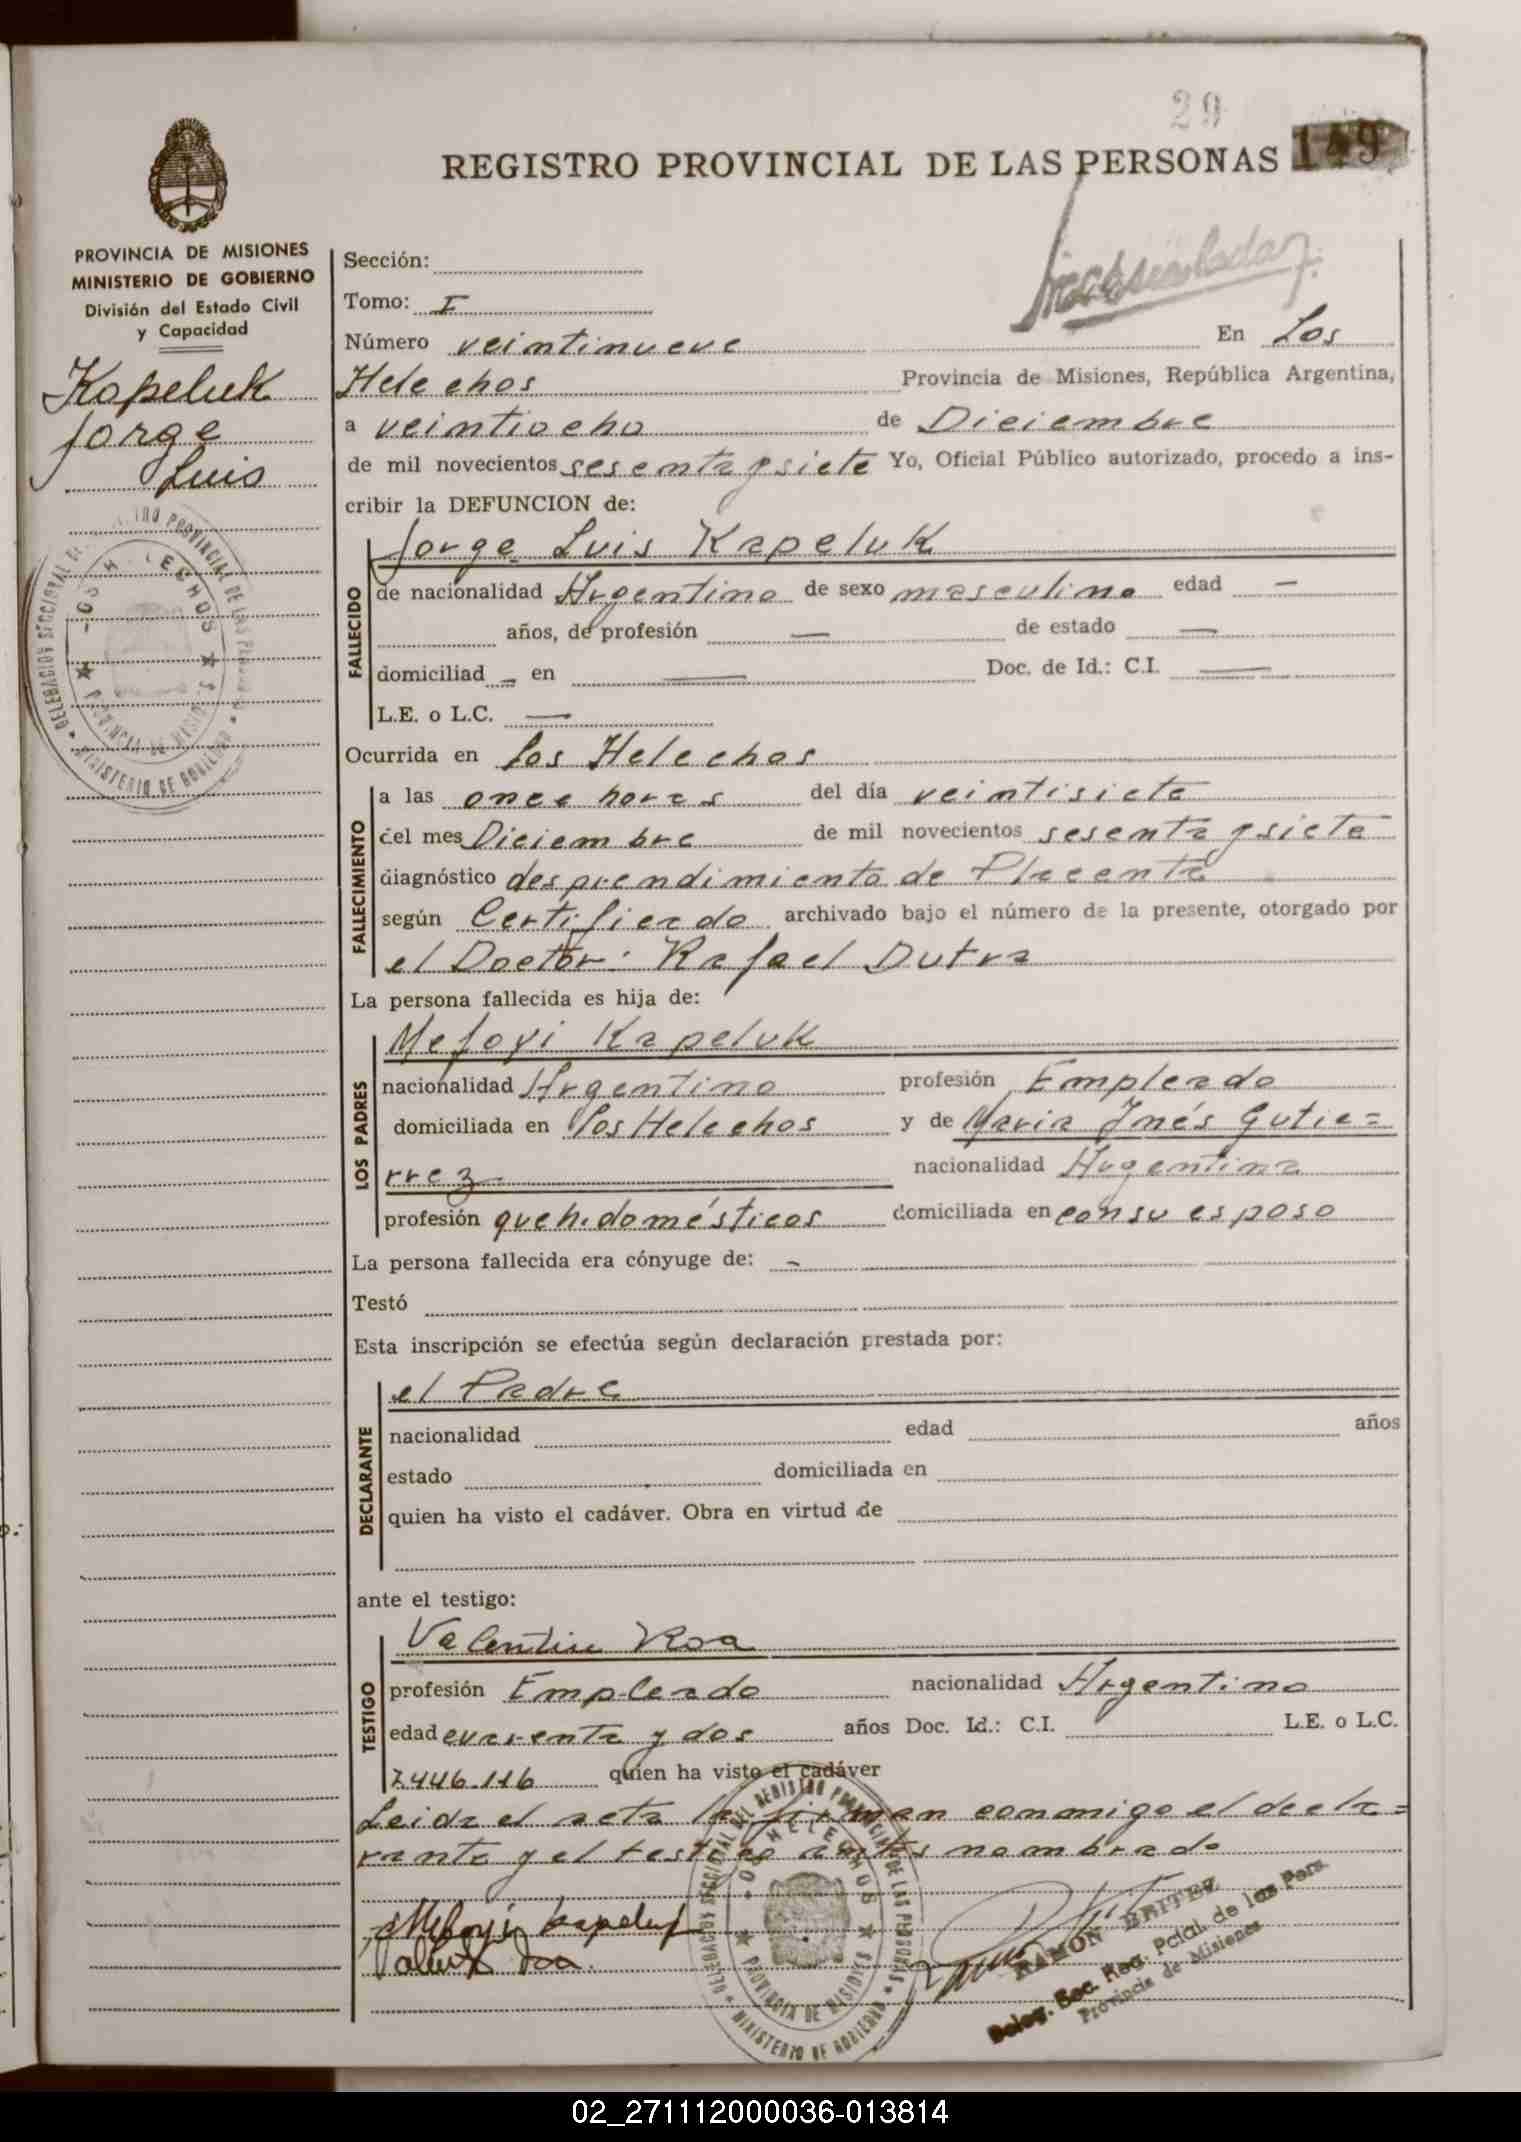 29
REGISTRO PROVINCIAL DE LAS PERSONAS 149
PROVINCIA DE MISIONES
MINISTERIO DE GOBIERNO
División del Estado Civil
y Capacidad
Kapeluk
Jorge
Luis
Sección:
Tomo: I
Número veintinueve En Los
Helechos Provincia de Misiones, República Argentina,
a veintiocho de Diciembre
de mil novecientos sesenta y siete Yo, Oficial Público autorizado, procedo a ins-
cribir la DEFUNCION de:
Jorge Luis Kapeluk
FALLECIDO
de nacionalidad Argentino de sexo masculino edad —
años, de profesión — de estado —
domiciliad – en — Doc. de Id.: C.I. —
L.E. o L.C. —
Ocurrida en Los Helechos
FALLECIMIENTO
a las once horas del día veintisiete
del mes Diciembre de mil novecientos sesenta y siete
diagnóstico desprendimiento de Placenta
según Certificado archivado bajo el número de la presente, otorgado por
el Doctor: Rafael Dutra
La persona fallecida es hija de:
LOS PADRES
Mefoyi Kapeluk
nacionalidad Argentino profesión Empleado
domiciliada en Los Helechos y de Maria Inés Gutie=
rrez nacionalidad Argentina
profesión queh. domésticos domiciliada en con su esposo
La persona fallecida era cónyuge de: -
Testó
Esta inscripción se efectúa según declaración prestada por:
DECLARANTE
el Padre
nacionalidad edad años
estado domiciliada en
quien ha visto el cadáver. Obra en virtud de
ante el testigo:
TESTIGO
Valentin Rosa
profesión Empleado nacionalidad Argentino
edad cuarenta y dos años Doc. Id.: C.I. L.E. o L.C.
7.446.116 quien ha visto el cadáver
Leida el acta la firman conmigo el decla=
rante y el testigo antes nombrado
DELEGACION SECCIONAL DEL REGISTRO PROVINCIAL DE LAS PERSONAS
LOS HELECHOS
PROVINCIA DE MISIONES
MINISTERIO DE GOBIERNO
RAMON BRITEZ
Deleg. Sec. Reg. Pcial. de las Pers.
Provincia de Misiones
02_271112000036-013814